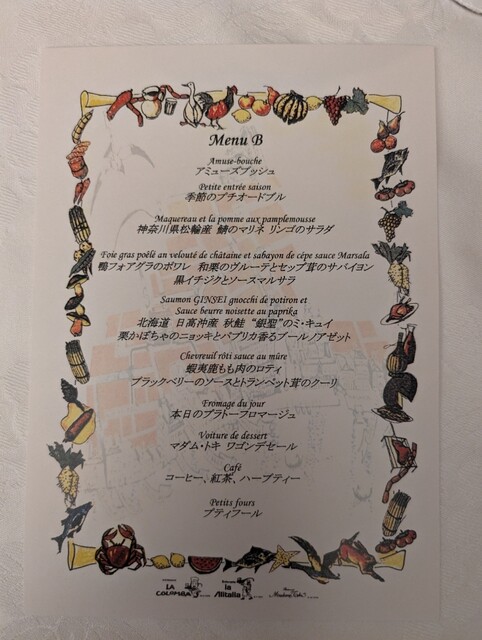 Menu B
Amuse-bouche
アミューズブッシュ
Petite entrée saison
季節のプチオードブル
Maquereau et la pomme aux pamplemousse
神奈川県松輪産 鯖のマリネ リンゴのサラダ
Foie gras poêlé an velouté de châtaine et sabayon de cèpe sauce Marsala
鴨フォアグラのポワレ 和栗のヴルーテとセップ茸のサバイヨン
黒イチジクとソースマルサラ
Saumon GINSEI gnocchi de potiron et
Sauce beurre noisette au paprika
北海道 日高沖産 秋鮭 “銀聖”のミ・キュイ
栗かぼちゃのニョッキとパプリカ香るブールノアゼット
Chevreuil rôti sauce au mûre
蝦夷鹿もも肉のロティ
ブラックベリーのソースとトランペット茸のクーリ
Fromage du jour
本日のプラトーフロマージュ
Voiture de dessert
マダム・トキ ワゴンデセール
Café
コーヒー、紅茶、ハーブティー
Petits fours
プティフール
LA COLOMBA
la Alitalia
Madame Toki